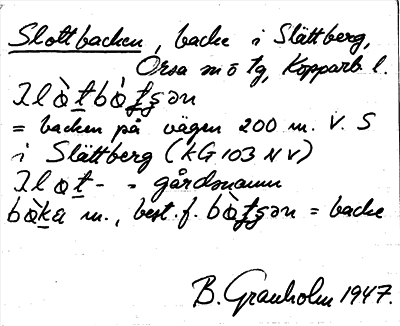 Slottbacken, backe i Slättberg,
Orsa sn ö tg, Kopparb l.
= backen på vägen 200 m. V. S
i Slättberg (KG 103 NV)
- = gårdsnamn
m., best. f. = backe
B. Granholm 1947.